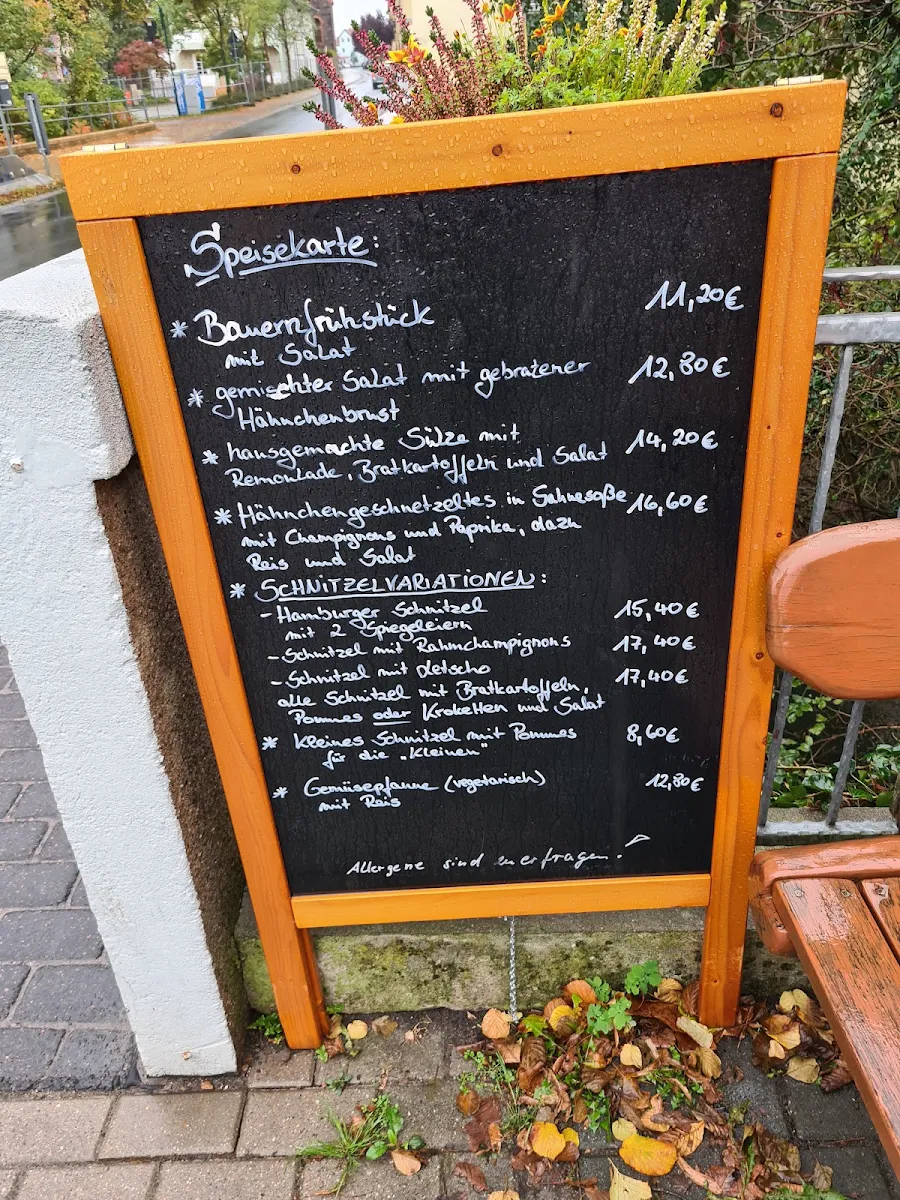 Speisekarte:
* Bauernfrühstück 11,20€
mit Salat
* gemischter Salat mit gebratener 12,80€
Hähnchenbrust
* hausgemachte Sülze mit 14,20€
Remoulade, Bratkartoffeln und Salat
* Hähnchengeschnetzeltes in Sahnesoße 16,60€
mit Champignons und Paprika, dazu
Reis und Salat
* SCHNITZELVARIATIONEN:
- Hamburger Schnitzel 15,40€
mit 2 Spiegeleiern
- Schnitzel mit Rahmchampignons 17,40€
- Schnitzel mit Letscho 17,40€
alle Schnitzel mit Bratkartoffeln,
Pommes oder Kroketten und Salat
* kleines Schnitzel mit Pommes 8,60€
für die „Kleinen"
* Gemüsepfanne (vegetarisch) 12,80€
mit Reis
Allergene sind zu erfragen!